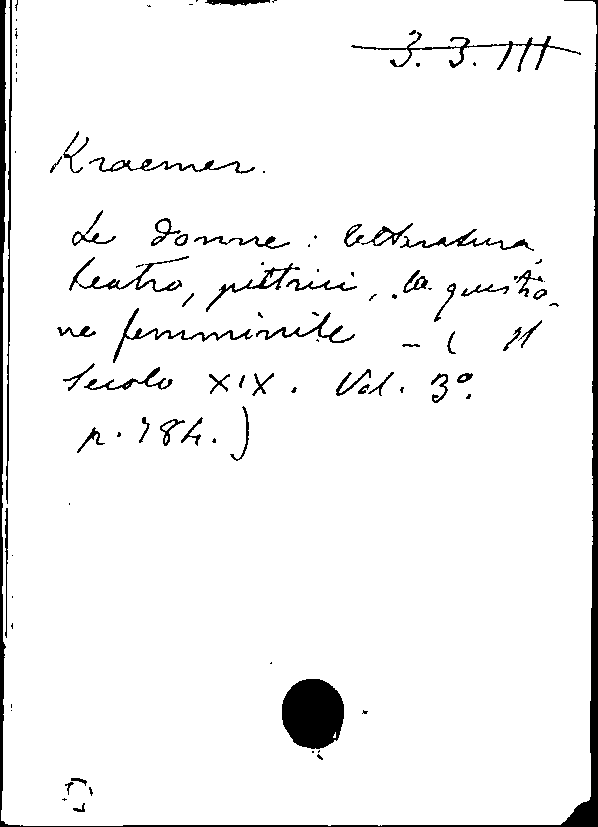 3. 3. III
Kraemer.
Le donne: letteratura,
teatro, pittrici, la questio-
ne femminile - ( Il
Secolo XIX. Vol. 3º.
p. 784.)